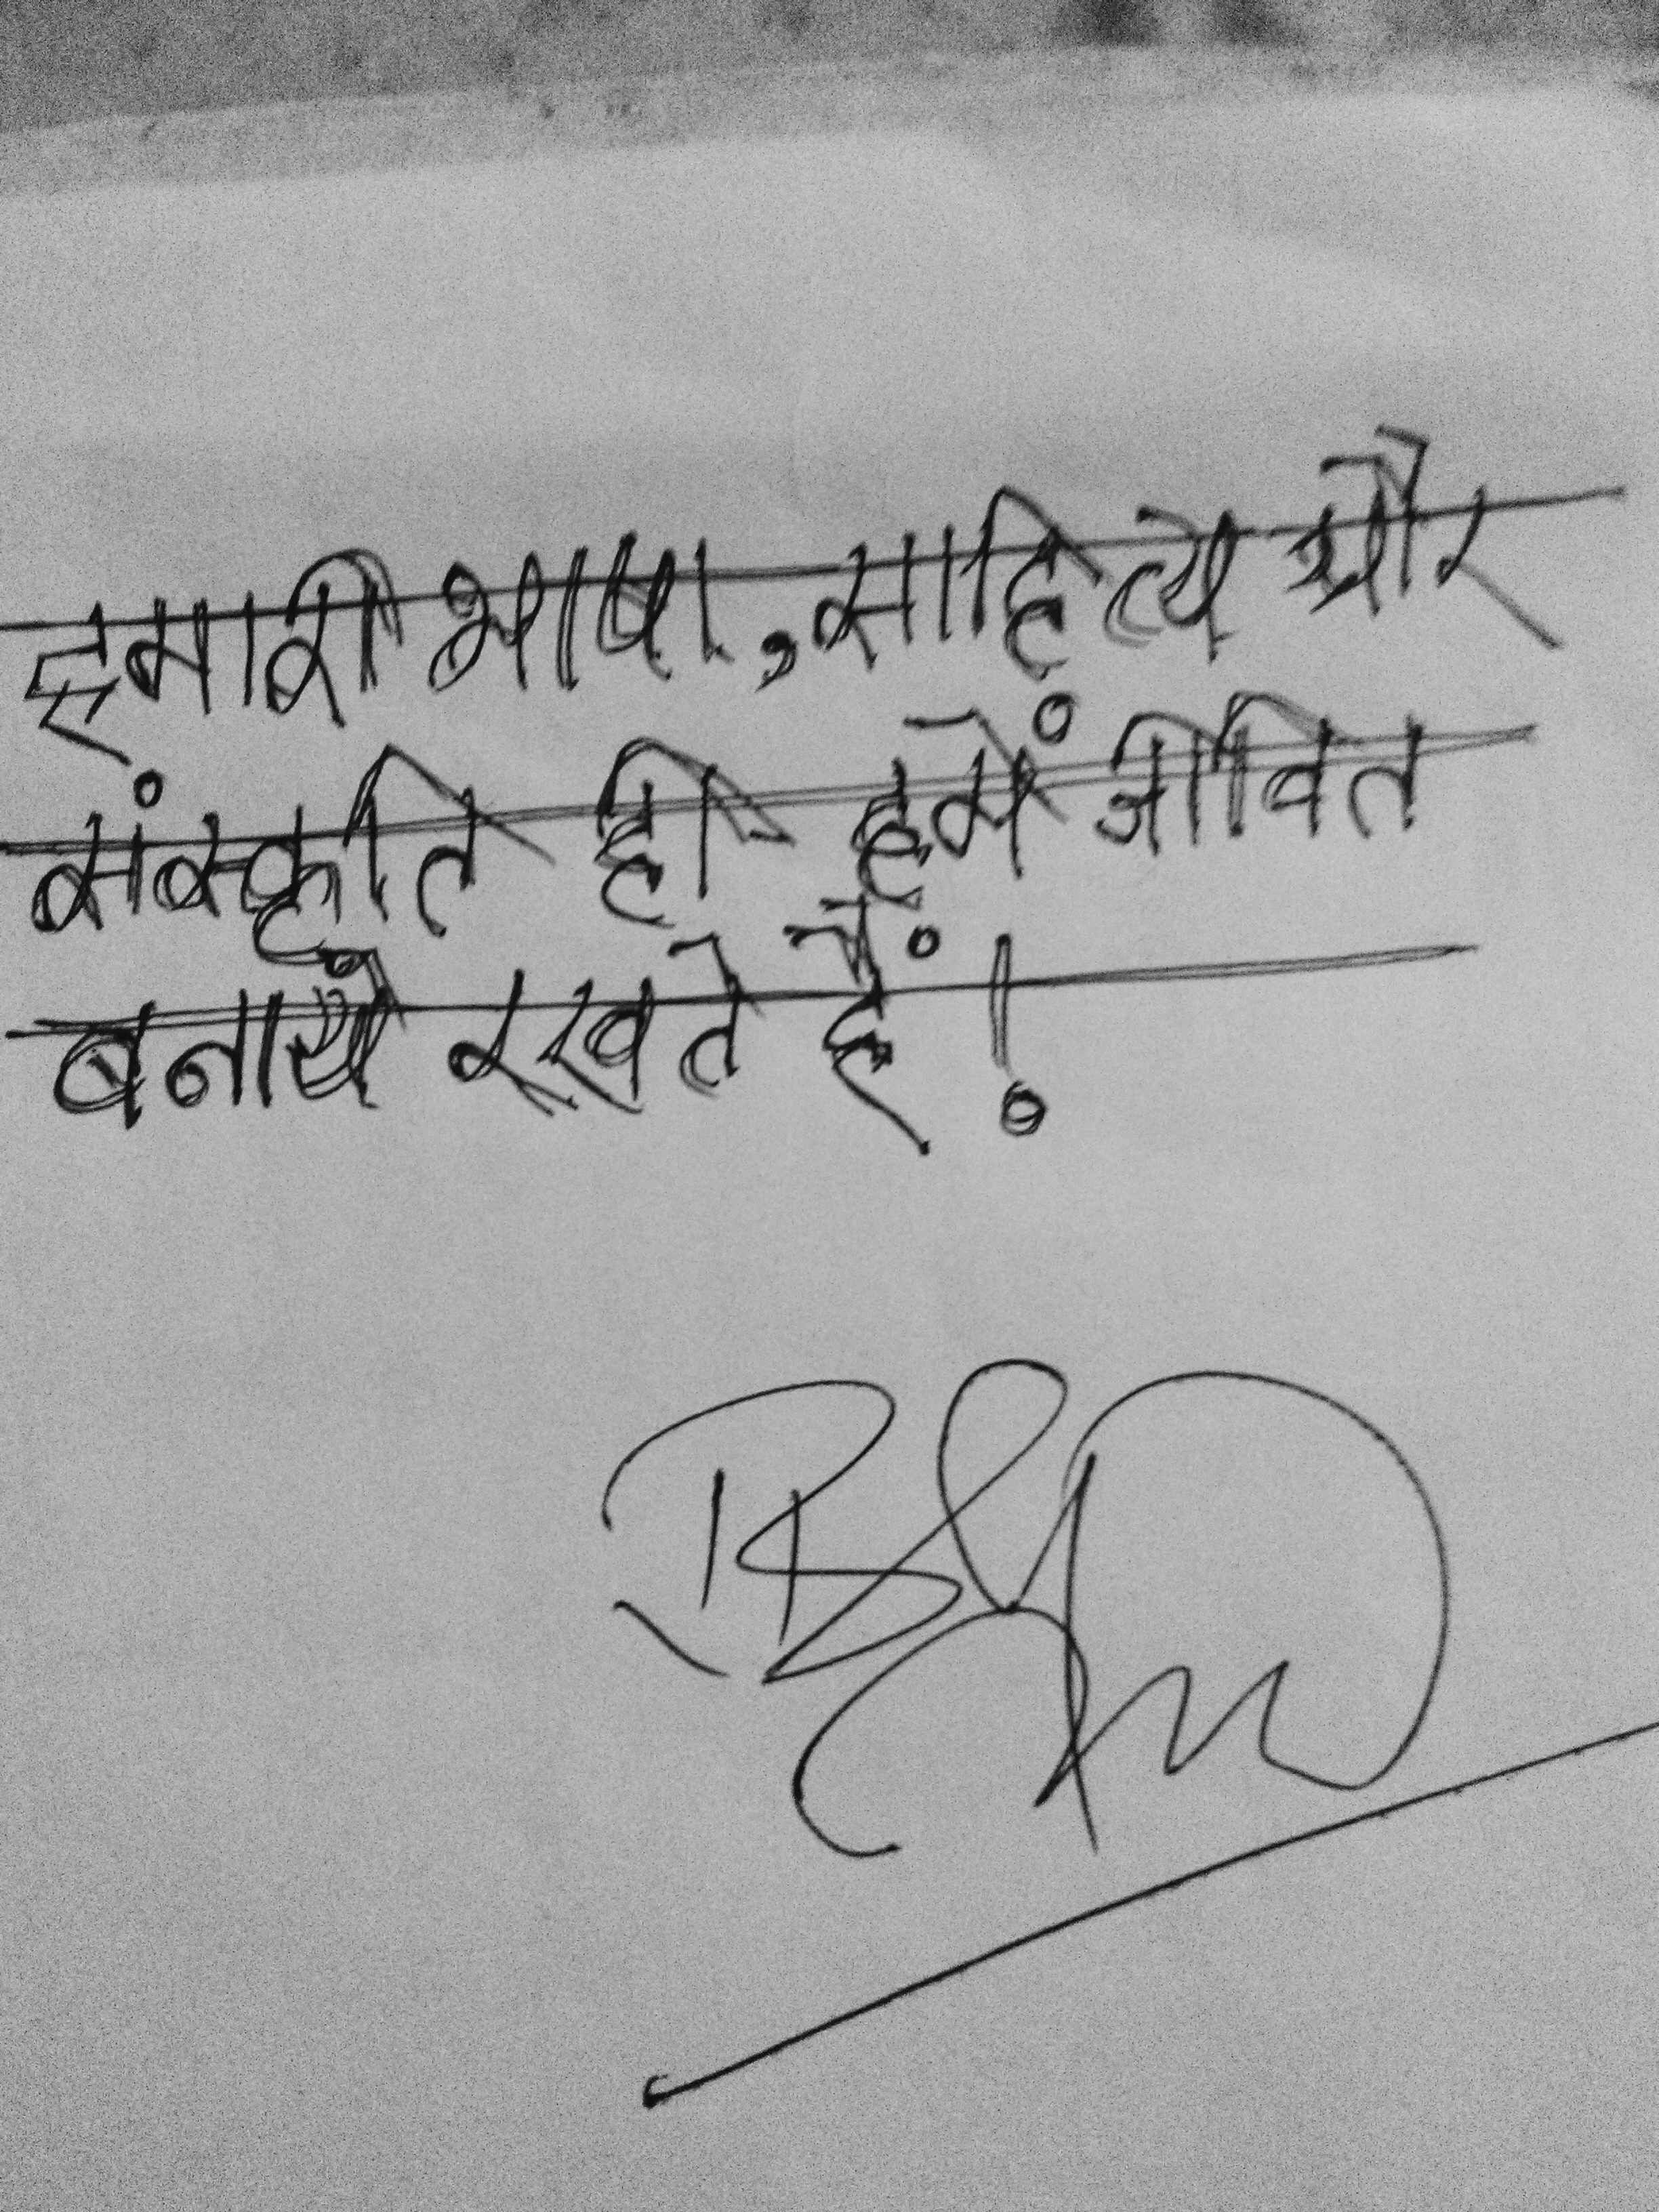 हमारी भाषा, साहित्य और
संस्कृति ही हमें जीवित
बनाये रखते हैं!